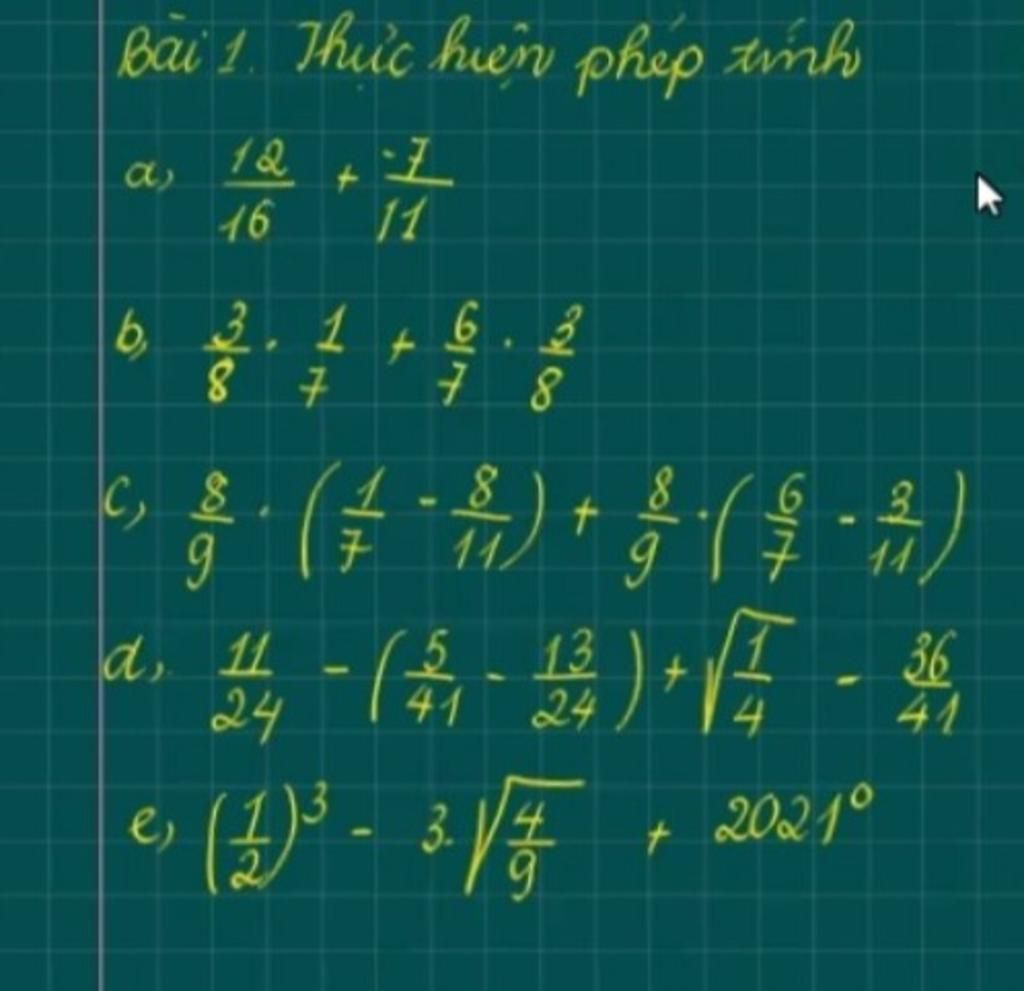 Bài 1. Thực hiện phép tính
a, 12/16 + -7/11
b, 3/8 . 1/7 + 6/7 . 3/8
c, 8/9 . (1/7 - 8/11) + 8/9 . (6/7 - 3/11)
d, 11/24 - (5/41 - 13/24) + √(1/4) - 36/41
e, (1/2)³ - 3.√(4/9) + 2021⁰